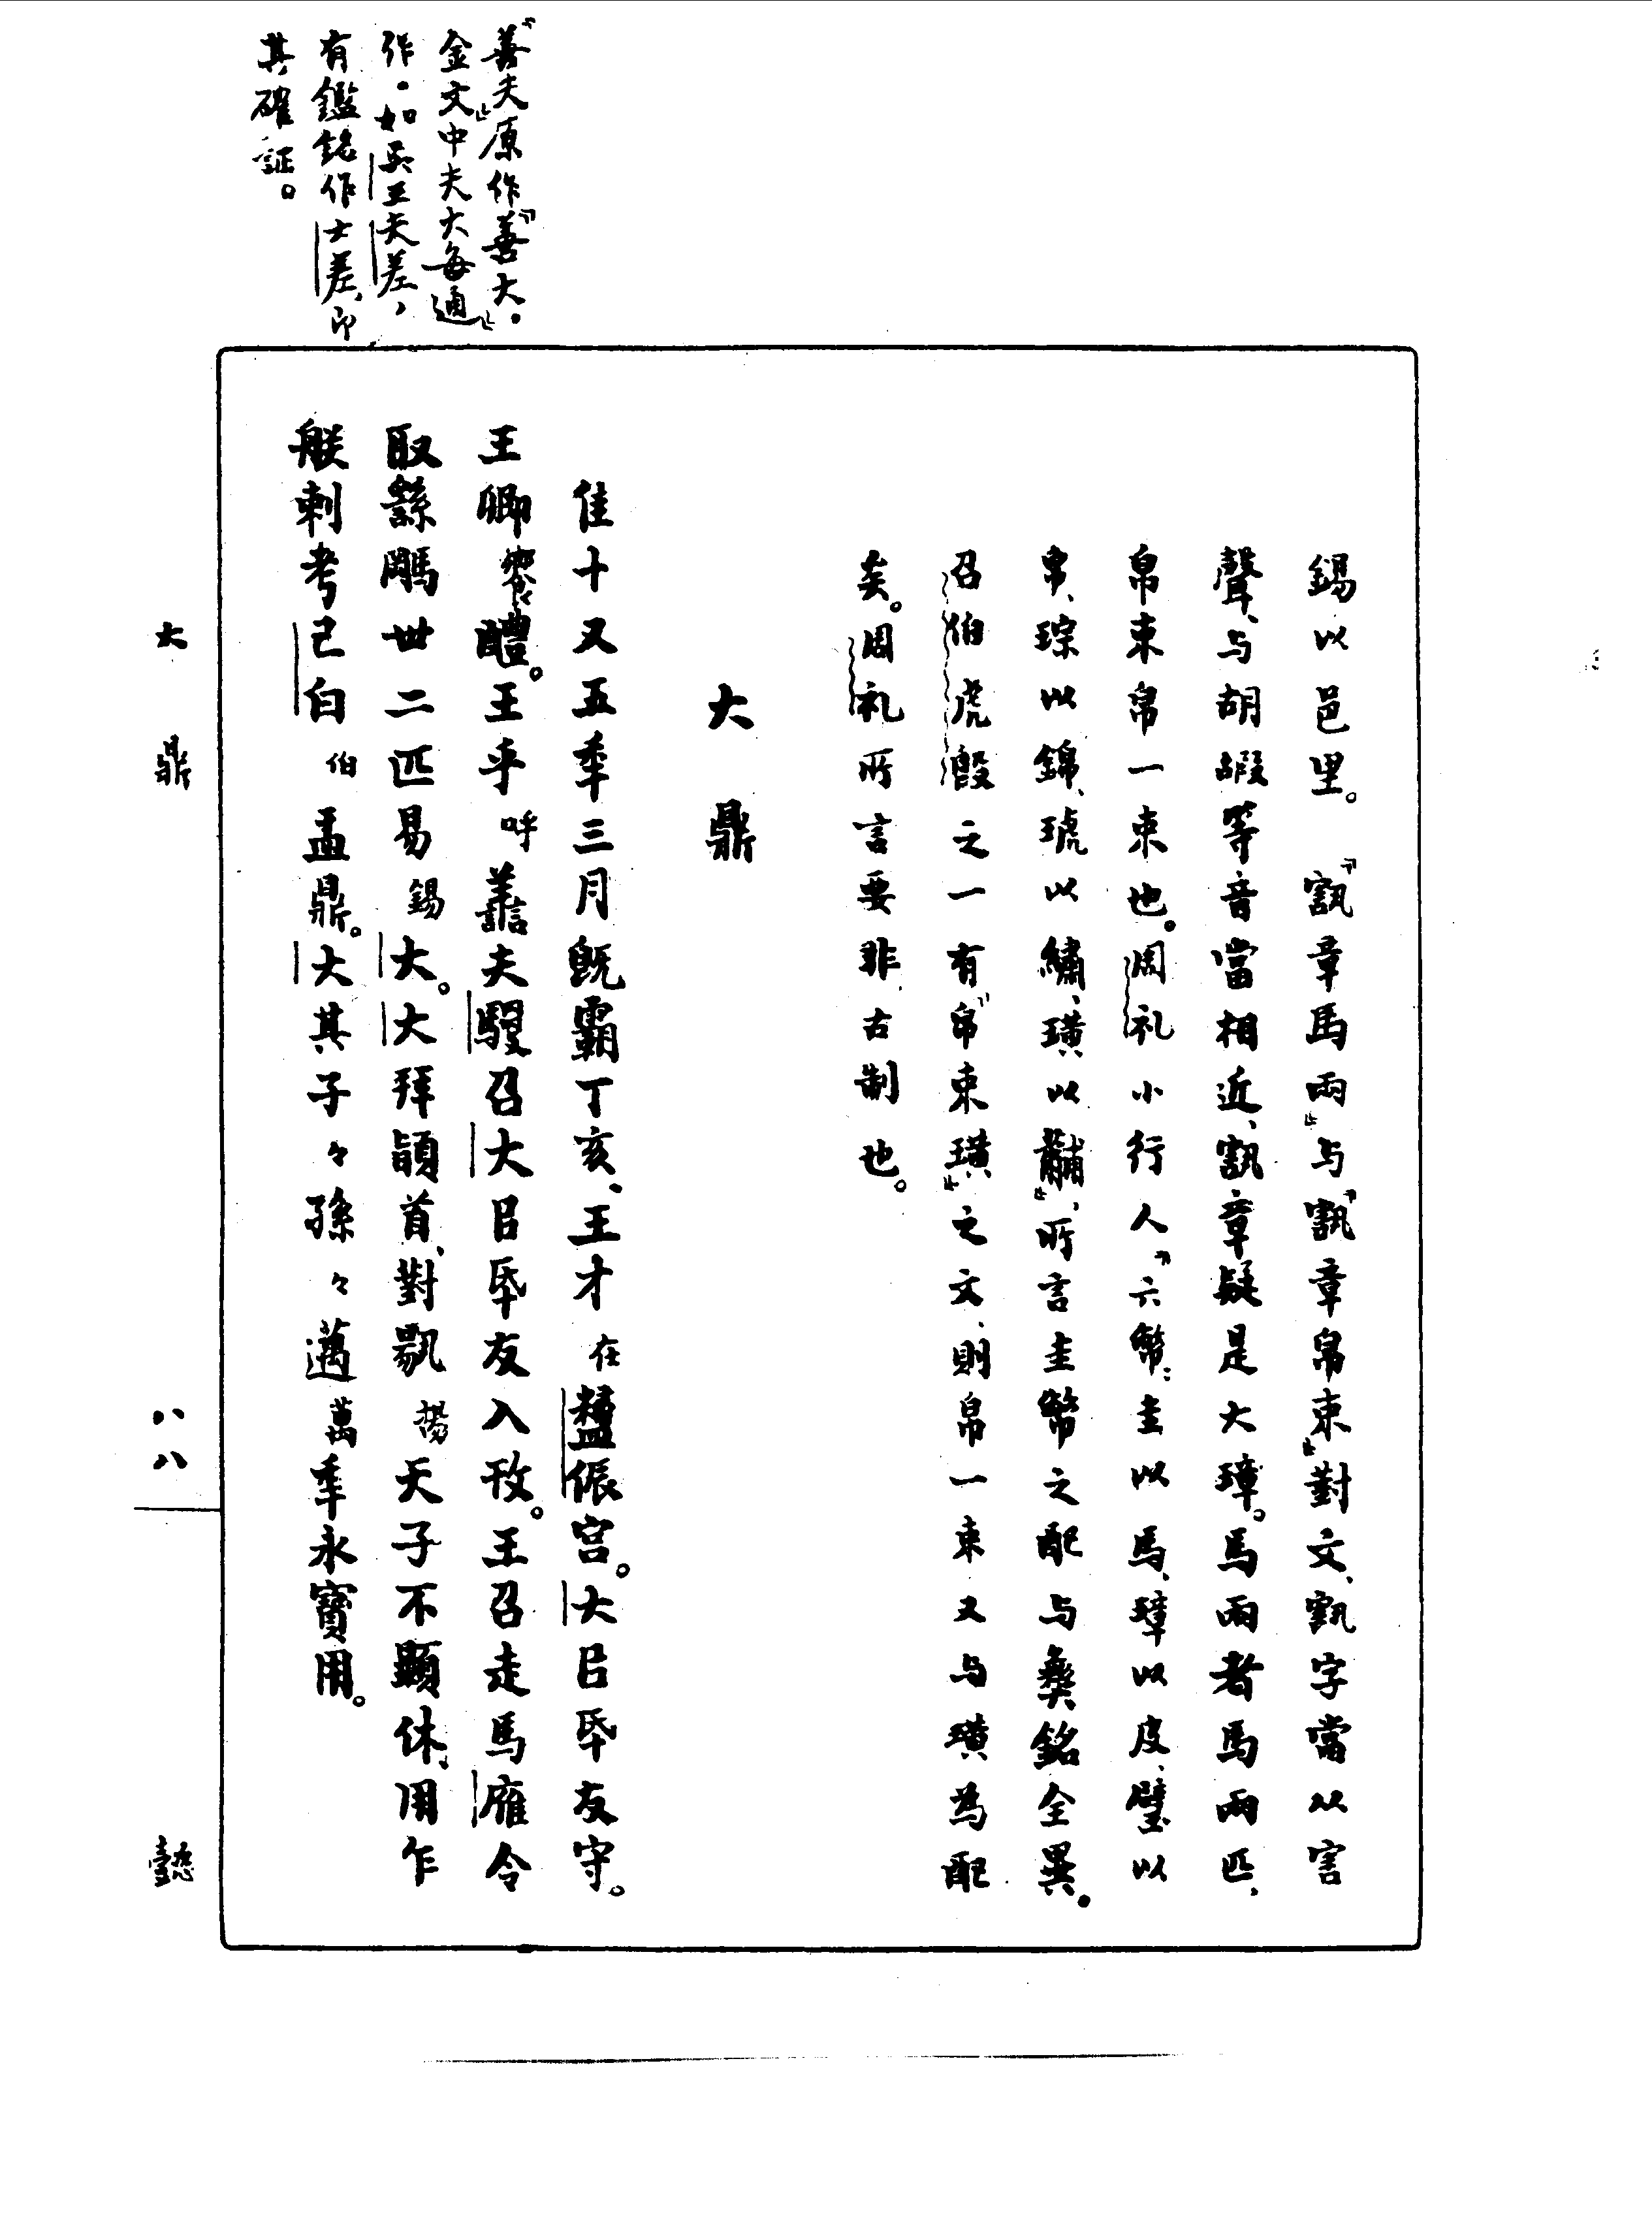 「善夫」原作「善大」。
金文中夫大每通
作。如吳王夫差,
有鑑銘作大差、即
其確証。
錫以邑里。「𧧸章馬兩」与「𧧸章帛束」對文、𧧸字當从害
聲、与胡嘏等音當相近、𧧸章疑是大璋。馬兩者馬兩匹、
帛束帛一束也。周礼小行人「六幣:圭以馬、璋以皮、璧以
帛、琮以錦、琥以繡、璜以黼」、所言圭幣之配与彝銘全異。
召伯虎𣪘之一有「帛束璜」之文、則帛一束又与璜為配
矣。周礼所言要非古制也。
大鼎
隹十又五年三月旣霸丁亥、王才在𥂴侲宮。大㠯氒友守。
王卿饗醴。王乎呼譱夫騣召大㠯氒友入攼。王召走馬雁令
取䮷䮂卅二匹易錫大。大拜𩒨首、對𩁹揚天子不顯休、用乍
般剌考己白伯盂鼎。大其子々孫々邁萬年永寶用。
大鼎
八八